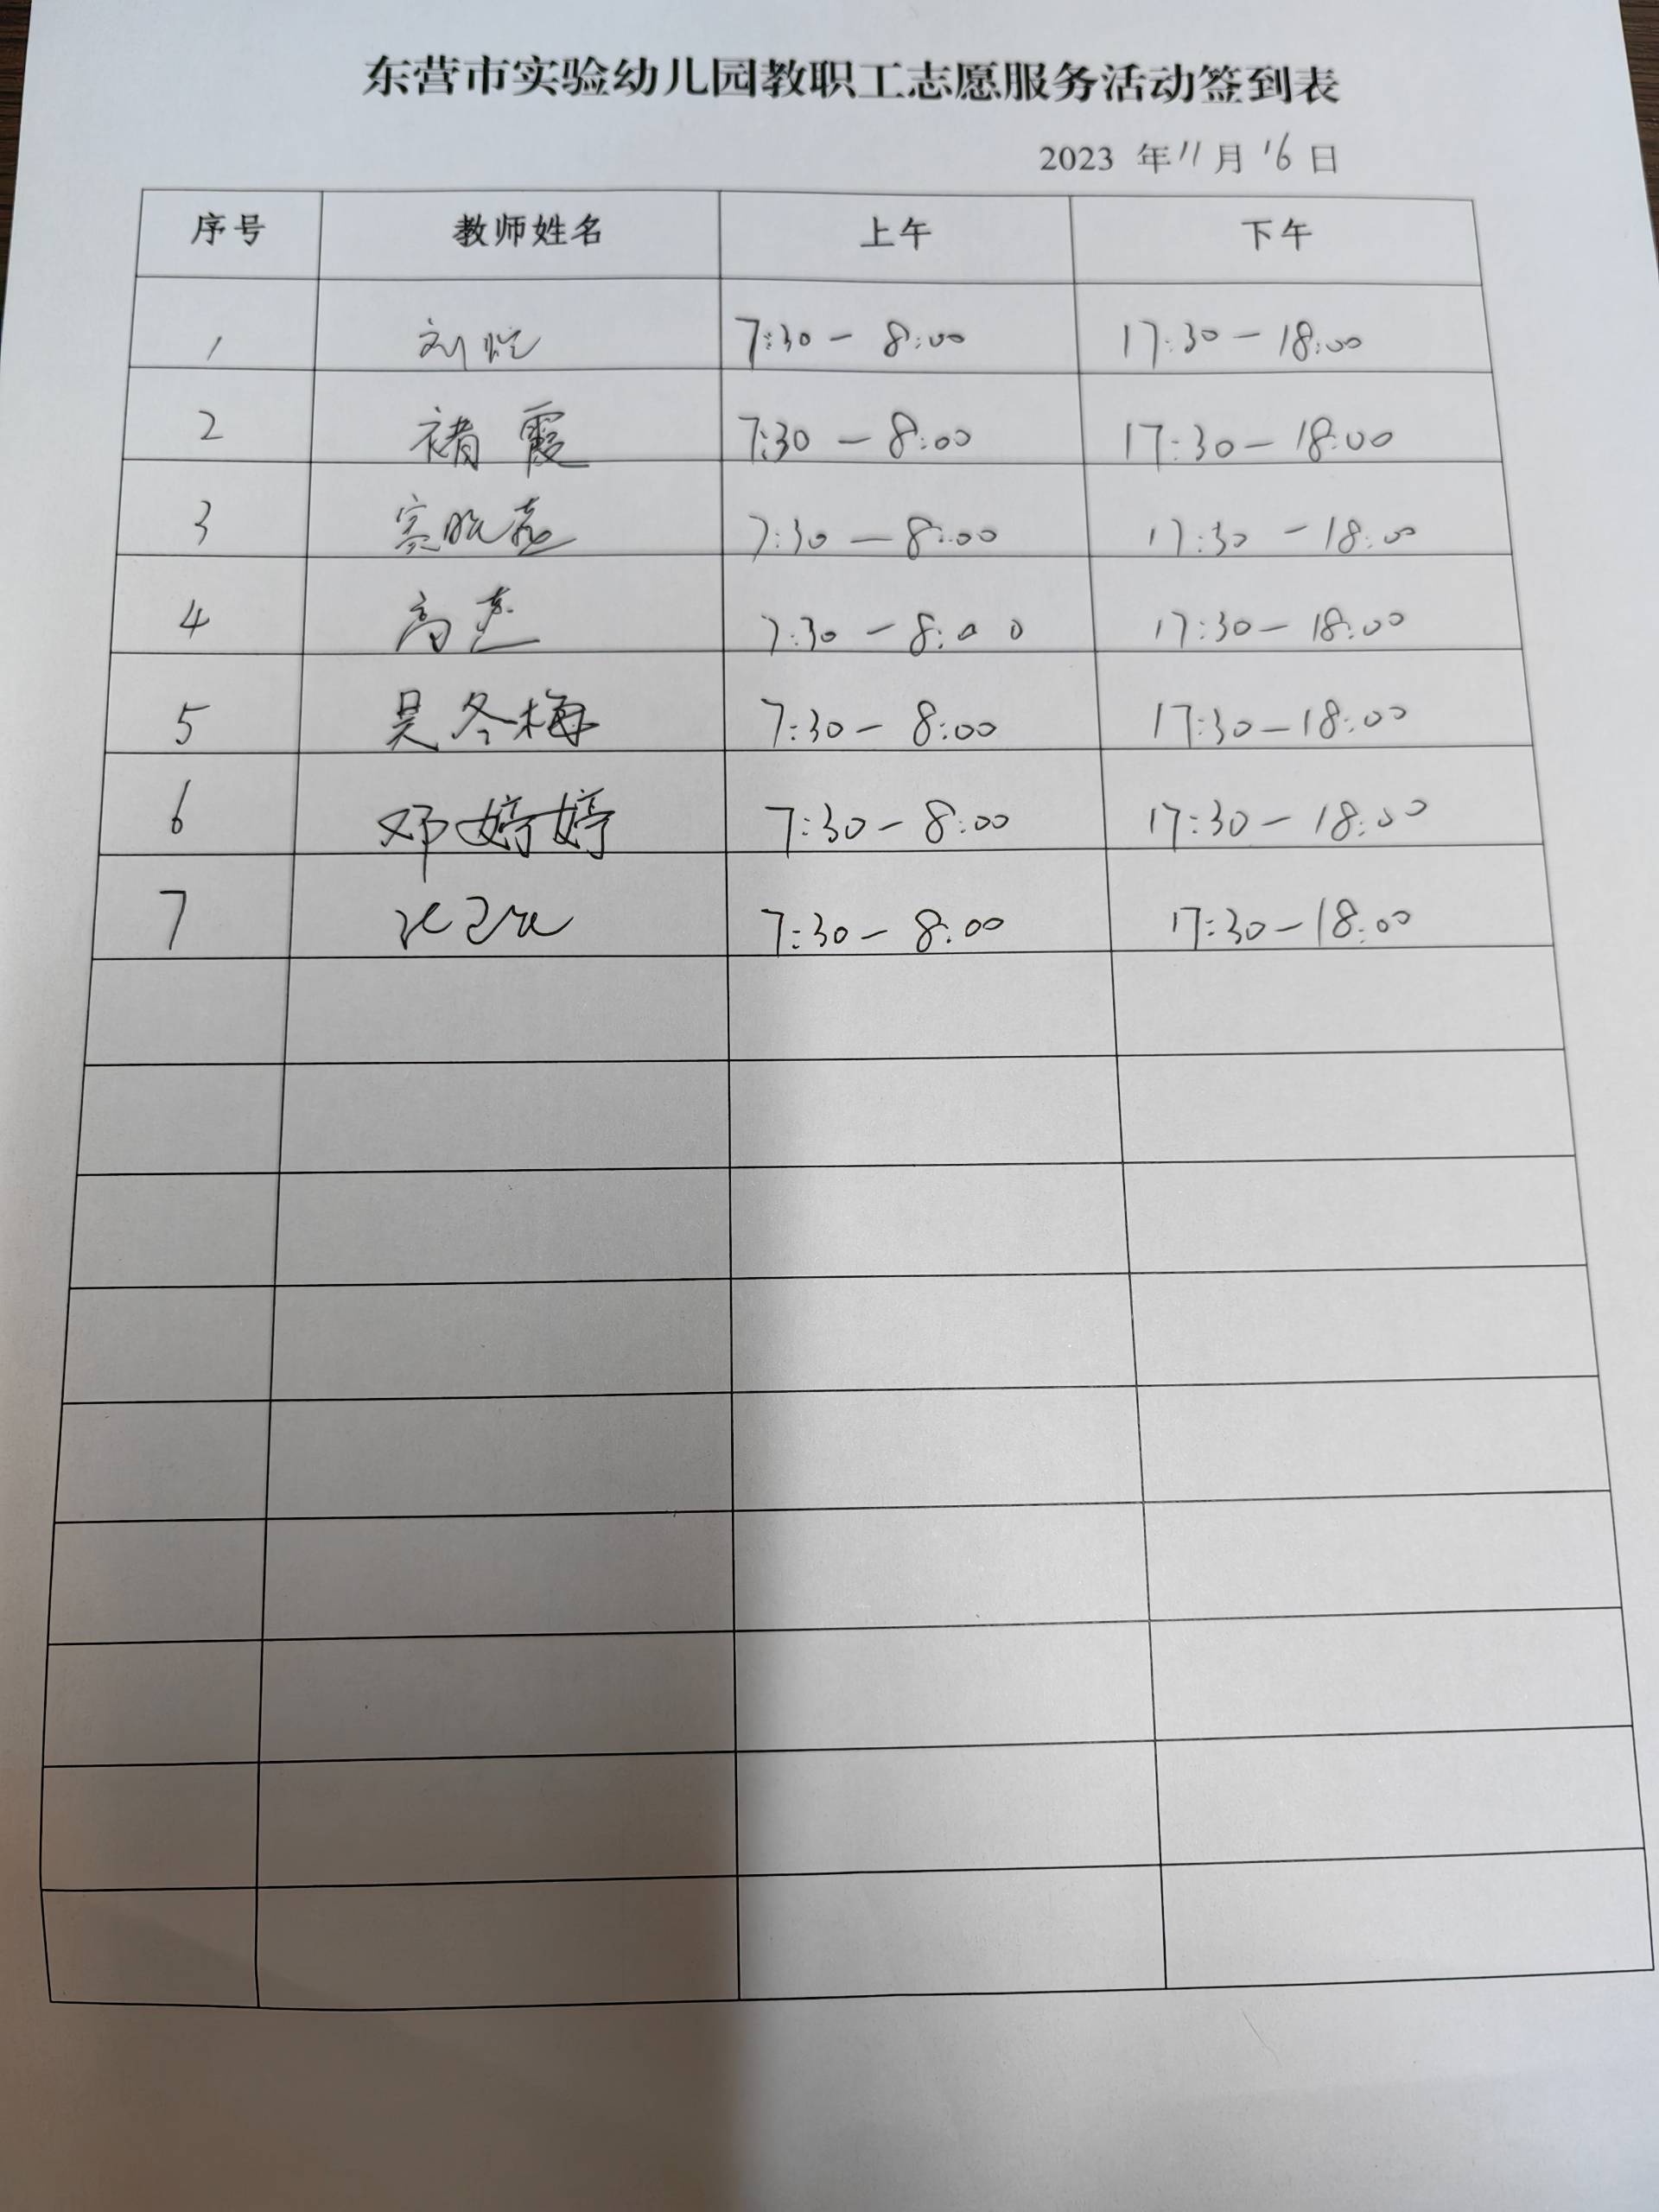 东营市实验幼儿园教职工志愿服务活动签到表
2023 年 11 月 16 日
序号 教师姓名 上午 下午
1 刘 7:30 — 8:00 17:30 — 18:00
2 褚霞 7:30 — 8:00 17:30 — 18:00
3 7:30 — 8:00 17:30 — 18:00
4 高 7:30 — 8:00 17:30 — 18:00
5 吴冬梅 7:30 — 8:00 17:30 — 18:00
6 邓婷婷 7:30 — 8:00 17:30 — 18:00
7 7:30 — 8:00 17:30 — 18:00